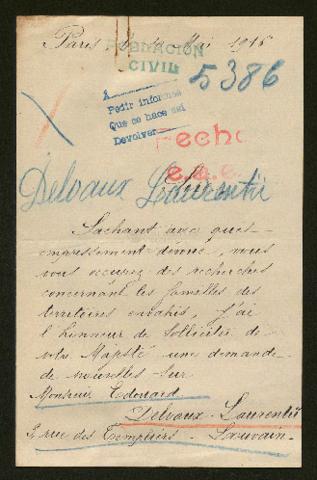 Paris le Mai 1916
POBLACION
CIVIL
5386
A
Pedir informes
Que se hace asi
Devolver
Fecho
Delvaux Laurentis
Sachant avec quel
empressement dévoué, vous
vous occupez des recherches
concernant les familles des
territoires envahis, j'ai
l'honneur de solliciter de
votre Majesté une demande
de nouvelles sur
Monsieur Edouard
Delvaux-Laurentis
rue des Templiers - Louvain -